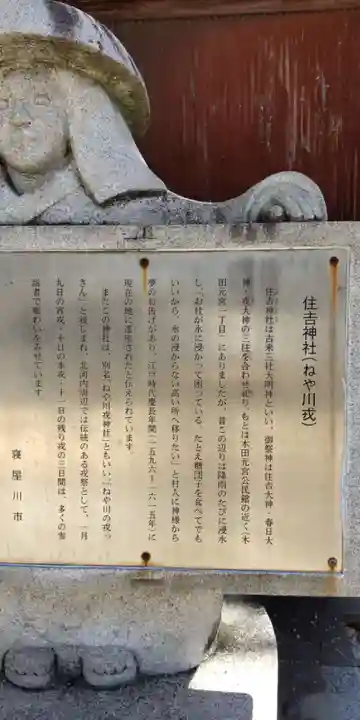 住吉神社(ねや川戎)
住吉神社は古来三社大明神といい、御祭神は住吉大神・春日大
神・戎大神の三柱を合わせ祀り、もとは木田元宮公民館の近く(木
田元宮一丁目)にありましたが、昔この辺りは降雨のたびに浸水
し「お社が水に浸かって困っている。たとえ糠団子を食べてでも
いいから、水の浸からない高い所へ移りたい」と村人に神様から
夢のお告げがあり、江戸時代慶長年間(一五九六~一六一五年)に
現在の地に遷座されたと伝えられています。
またこの神社は、別名「ねや川戎神社」ともいい「ねや川の戎っ
さん」と親しまれ、北河内周辺では伝統のある戎祭として、一月
九日の宵戎・十日の本戎・十一日の残り戎の三日間は、多くの参
詣者で賑わいをみせています。
寝屋川市